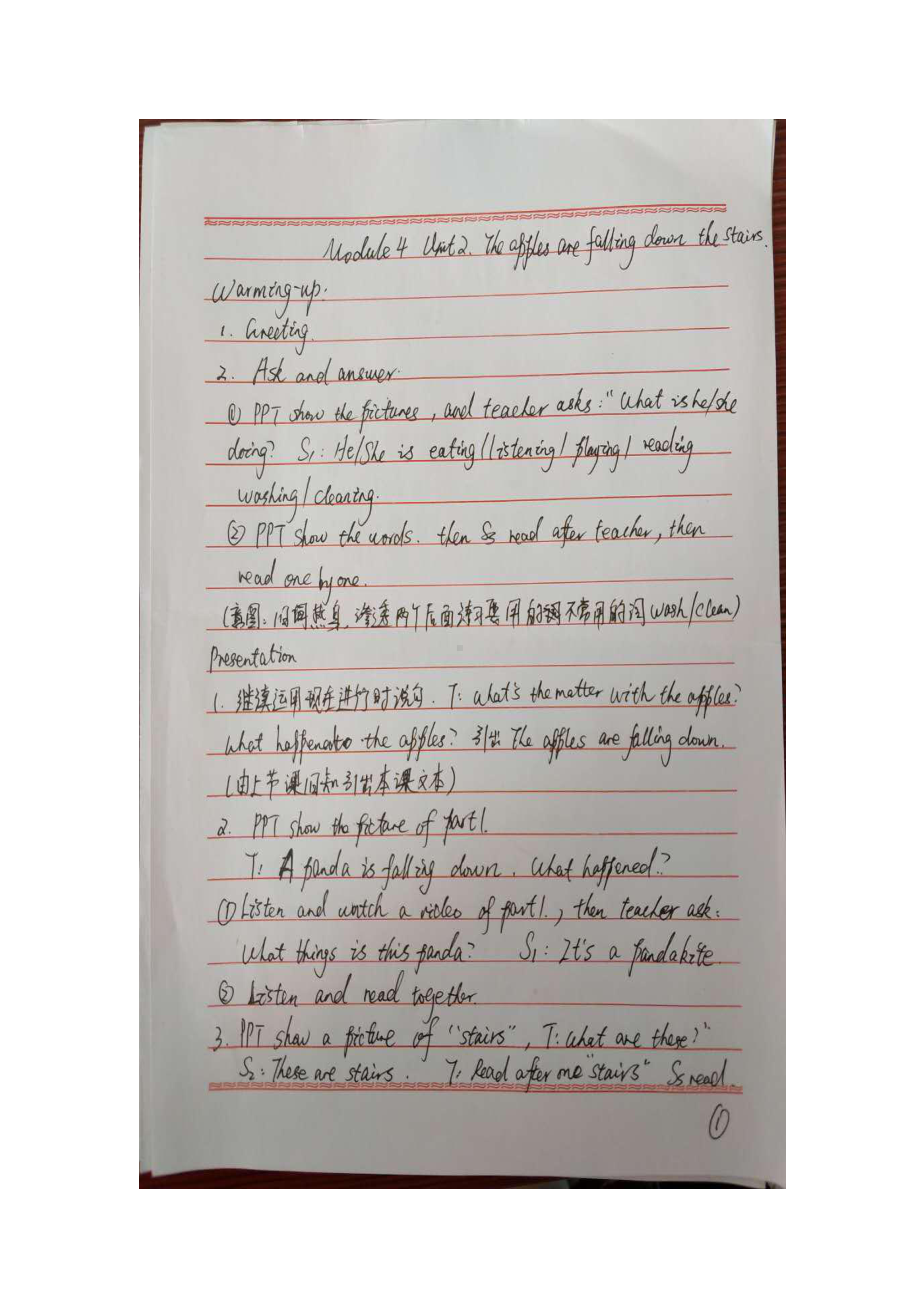 Module 4 Unit 2. The apples are falling down the stairs.
Warming-up.
1. Greeting.
2. Ask and answer.
① PPT show the pictures, and teacher asks: "What is he/she
doing? S₁: He/She is eating/listening/playing/reading
washing/cleaning.
② PPT show the words. then Ss read after teacher, then
read one by one.
(意图: 问题热身, 渗透两个后面练习要用的词不常用的词 wash/clean)
Presentation
1. 继续运用现在进行时说句. T: What's the matter with the apples?
What happened to the apples? 引出 The apples are falling down.
(由上节课旧知引出本课文本)
2. PPT show the picture of part 1.
T: A panda is falling down. What happened?
① Listen and watch a video of part 1., then teacher ask:
What things is this panda? S₁: It's a panda kite.
② Listen and read together.
3. PPT show a picture of "stairs", T: What are these?"
S₂: These are stairs. T: Read after me "stairs" Ss read.
①